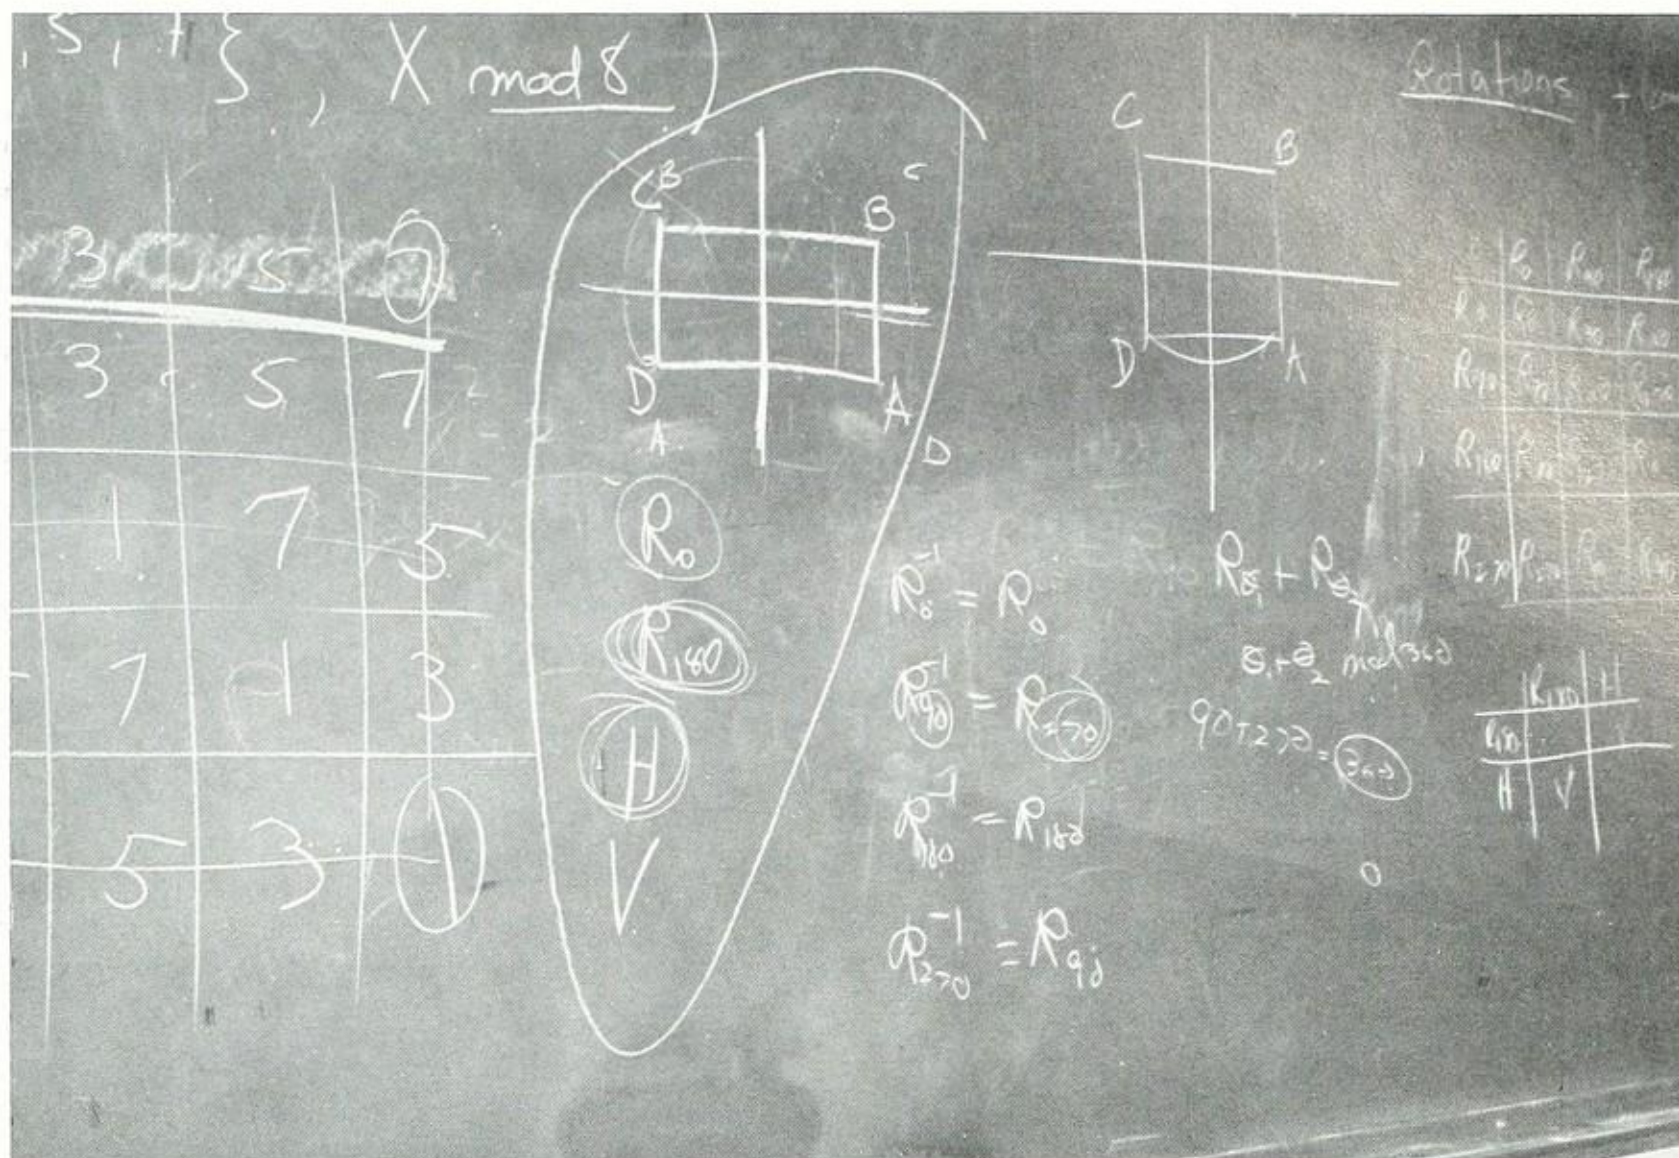 , 5, 7 } , X mod 8
3 5 7
3 5 7
1 7 5
7 1 3
5 3 1
C B C
B
D A
A D
R₀
R₁₈₀
H
V
C B
D A
R₀⁻¹ = R₀
R₉₀⁻¹ = R₂₇₀
R₁₈₀⁻¹ = R₁₈₀
R₂₇₀⁻¹ = R₉₀
Rθ₁ + Rθ₂
θ₁+θ₂ mod 360
90+270 = 360
0
Rotations
R₀ R₉₀ R₁₈₀
R₀ R₀ R₉₀ R₁₈₀
R₉₀
R₁₈₀
R₂₇₀
R₁₈₀ H
R₁₈₀
H V